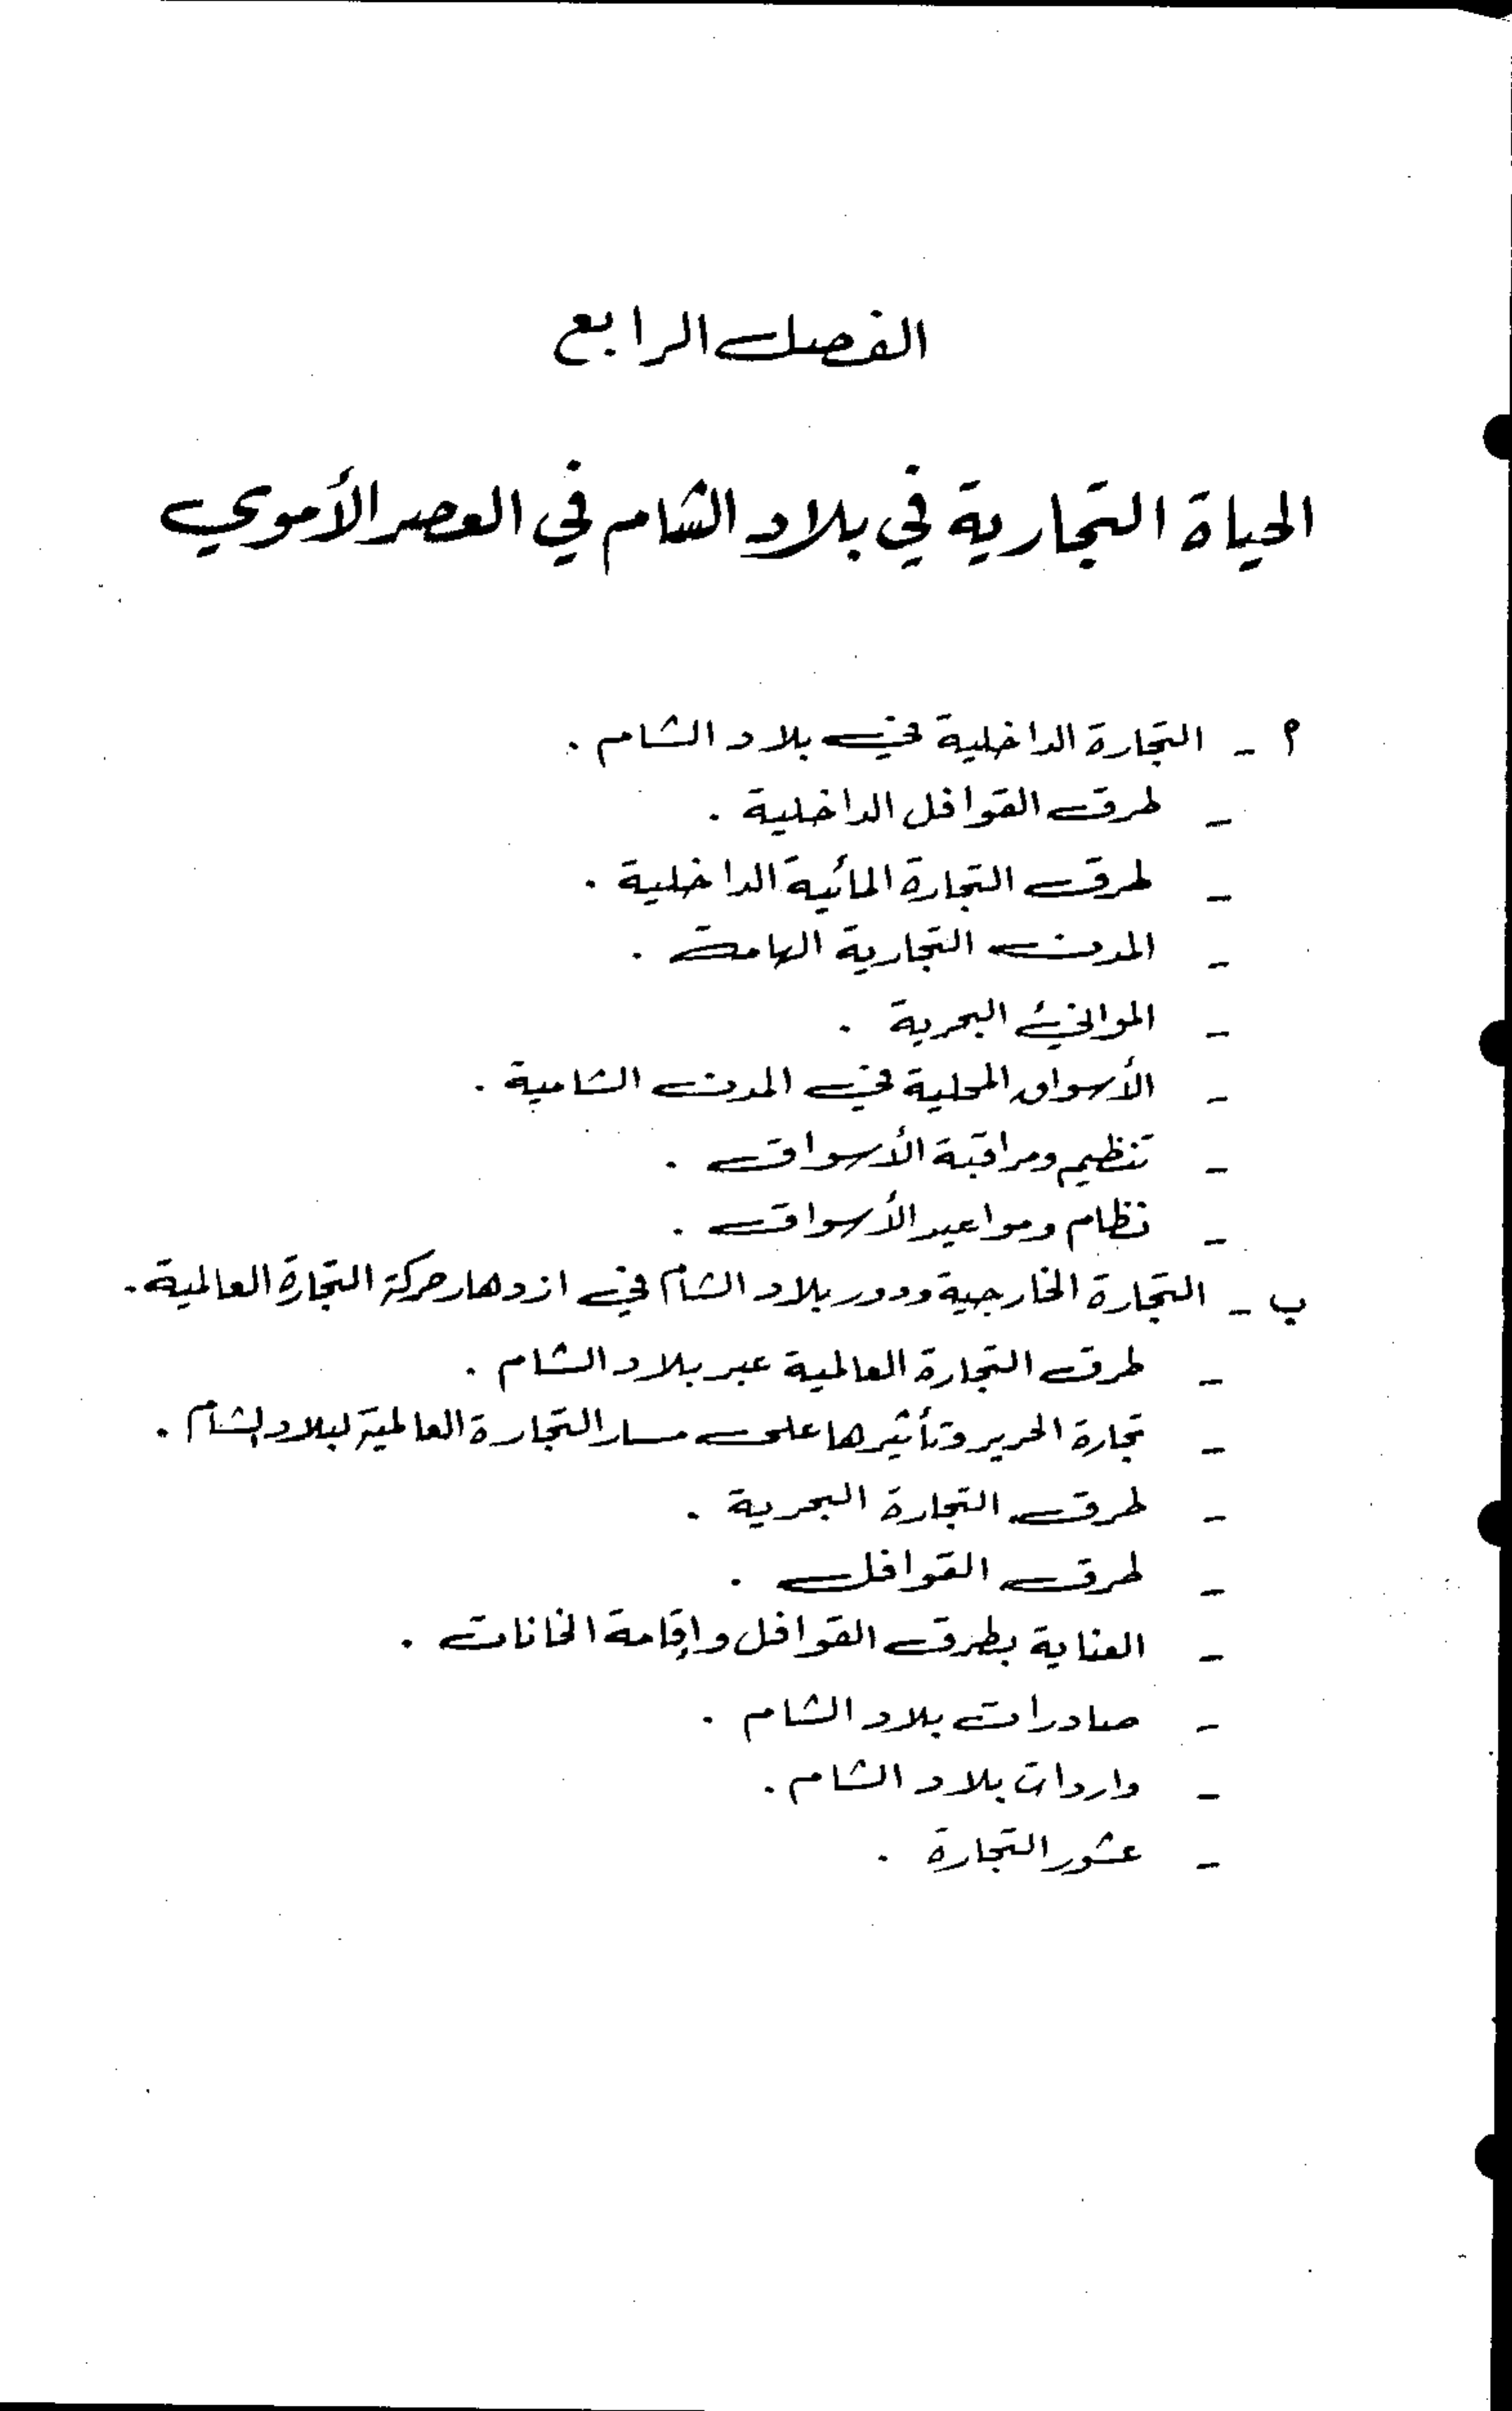 الفصل الرابع
الحياة التجارية في بلاد الشام في العصر الأموي
أ - التجارة الداخلية في بلاد الشام .
- طرق القوافل الداخلية .
- طرق التجارة المائية الداخلية .
- المدن التجارية الهامة .
- الموانئ البحرية .
- الأسواق المحلية في المدن الشامية .
- تنظيم ومراقبة الأسواق .
- نظام ومواعيد الأسواق .
ب - التجارة الخارجية ودور بلاد الشام في ازدهار حركة التجارة العالمية .
- طرق التجارة العالمية عبر بلاد الشام .
- تجارة الحرير وتأثيرها على مسار التجارة العالمية لبلاد الشام .
- طرق التجارة البحرية .
- طرق القوافل .
- العناية بطرق القوافل وإقامة الخانات .
- صادرات بلاد الشام .
- واردات بلاد الشام .
- عشور التجارة .